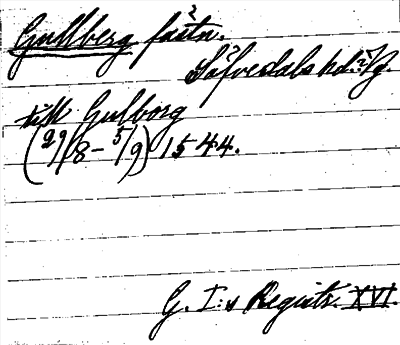 Gullberg fästn.
Säfvedals hd. Vg.
till Gulborg
(29/8 – 5/9) 1544.
G. I:s Registr. XVI.